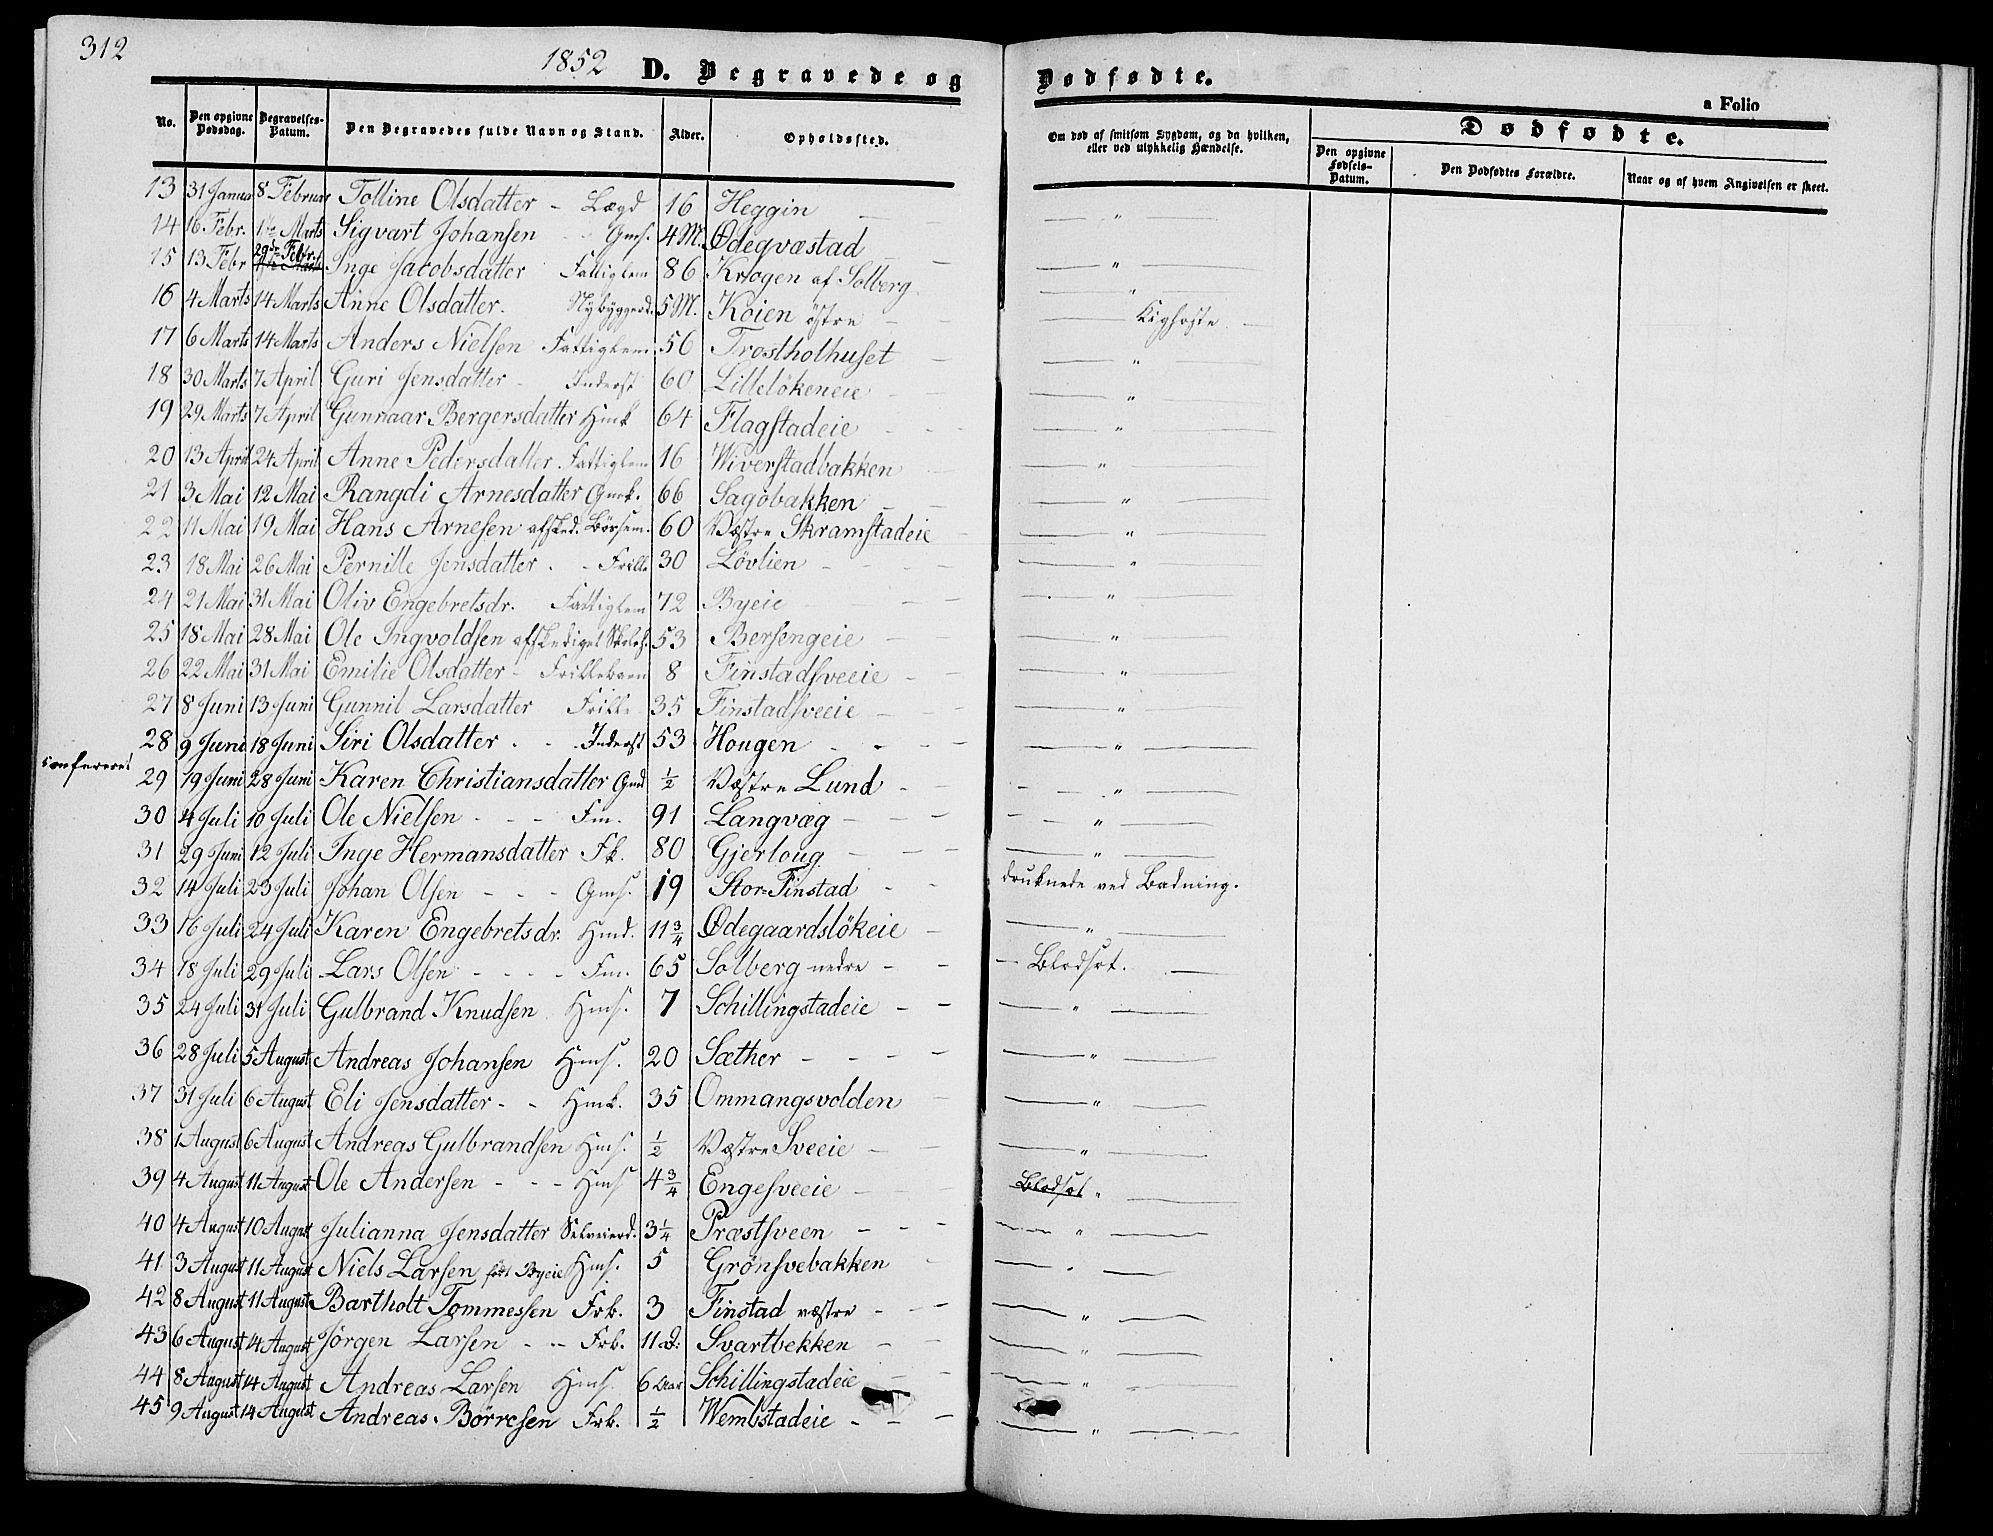 312
1852
D. Begravede og Dødfødte.
a Folio
No. Den opgivne Dødsdag. Begravelses-Datum. Den Begravedes fulde Navn og Stand. Alder. Opholdssted. Om død af smitsom Sygdom, og da hvilken, eller ved ulykkelig Hændelse. Dødfødte.
Den opgivne Fødsels-Datum. Den Dødfødtes Forældre. Naar og af hvem Angivelsen er skeet.
13 31 Januar 8 Februar Tolline Olsdatter - Lægd 16 Heggin — " —
14 16 Febr. 1ste Marts Sigvart Johansen - Gms. 4 M. Ødegvæstad — " —
15 13 Febr 29de Febr. Inge Jacobsdatter Fattiglem 86 Krogen af Solberg — " —
16 4 Marts 14 Marts Anne Olsdatter. Nybyggerd. 5 M. Koien östre — Kighoste —
17 6 Marts 14 Marts Anders Nielsen Fattiglem 56 Trostholhuset — " —
18 30 Marts 7 April Guri Jensdatter - Inderst 60 Lillelökeneie — " —
19 29 Marts 7 April Gunnaar Bergersdatter Hmk 64 Flagstadeie — " —
20 13 April 24 April Anne Pedersdatter. Fattiglem 16 Wiverstadbakken — " —
21 3 Mai 12 Mai Rangdi Arnesdatter Gmk. 66 Sagöbakken — " —
22 11 Mai 19 Mai Hans Arnesen afsked. Börsem. 60 Væstre Skramstadeie — " —
23 18 Mai 26 Mai Pernille Jensdatter. - Frille 30 Lövlien — " —
24 21 Mai 31 Mai Oliv Engebretsdr. Fattiglem 72 Byeie — " —
25 18 Mai 28 Mai Ole Ingvoldsen afskediget Skoleh. 53 Bersengeie — " —
26 22 Mai 31 Mai Emilie Olsdatter - Frillebarn 8 Finstadsveeie — " —
27 8 Juni 13 Juni Gunnil Larsdatter Frille 35 Finstadsveeie — " —
28 9 Juni 18 Juni Siri Olsdatter. - Inderst 53 Hougen — " —
confereret
29 19 Juni 28 Juni Karen Christiansdatter Gmd ½ Væstre Lund — " —
30 4 Juli 10 Juli Ole Nielsen - - - Fm. 91 Langvæg — " —
31 29 Juni 12 Juli Inge Hermansdatter Fk. 80 Gjerloug — " —
32 14 Juli 23 Juli Johan Olsen - - - Gms. 19 Stor-Finstad druknede ved Badning.
33 16 Juli 24 Juli Karen Engebretsdr. Hmd. 11¾ Ødegaardslökeie — " —
34 18 Juli 29 Juli Lars Olsen - - - - Fm. 65 Solberg nedre — Blodsot. —
35 24 Juli 31 Juli Gulbrand Knudsen Hms. 7 Schillingstadeie — " —
36 28 Juli 5 August Andreas Johansen Hms. 20 Sæther — " —
37 31 Juli 6 August Eli Jensdatter - - Hmk. 35 Ommangsvolden — " —
38 1 August 6 August Andreas Gulbrandsen Hms. ½ Væstre Sveeie — " —
39 4 August 11 August Ole Andersen - - - Hms 4¾ Engesveeie Blodsot " —
40 4 August 10 August Julianna Jensdatter Selveierd. 3¼ Præstsveen — " —
41 3 August 11 August Niels Larsen født Byeie Hms. 5 Grönsvebakken — " —
42 8 August 11 August Bartholt Tommessen Frb. 3 Finstad væstre — " —
43 6 August 14 August Jörgen Larsen - - Frb. 11 Svartbekken — " —
44 8 August 14 August Andreas Larsen Hms. 6 Schillingstadeie — " —
45 9 August 14 August Andreas Börresen Frb. ½ Wembstadeie — " —